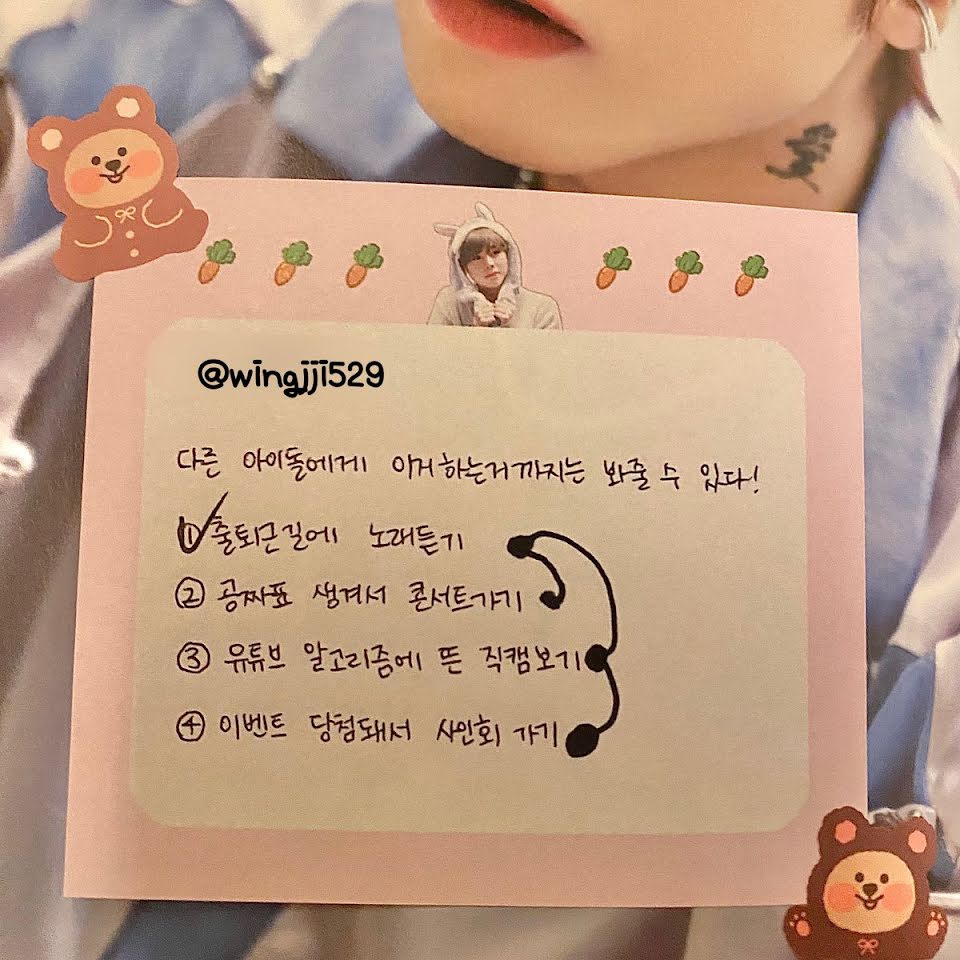 @wingjji529
다른 아이돌에게 이거하는거까지는 봐줄 수 있다!
① 출퇴근길에 노래듣기
② 공짜표 생겨서 콘서트가기
③ 유튜브 알고리즘에 뜬 직캠보기
④ 이벤트 당첨돼서 사인회 가기